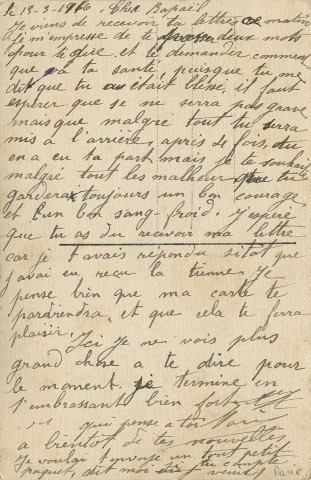 le 13-3-1916 Cher Rapaël
Je viens de recevoir ta lettre ce matin
Je m'empresse de te deux mots
pour te dire et te demander comment
que va ta santé, puisque tu me
dit que tu était blésé il faut
espérer que se ne serra pas grave
mais que malgré tout tu serra
mis à l'arrière, après 2 fois, tu
en a eu ta part mais je te souhait
malgré tout les malheur que tu
gardera toujours un bon courage
et un bon sang-froid. J'espère
que tu as du recevoir ma lettre
car je t'avais répondu sitôt que
j'avai eu reçu la tienne. Je
pense bien que ma carte te
pardriendra, et que cela te ferra
plaisir. Ici je ne vois plus
grand chose a te dire pour
le moment. je termine en
t'embrassant bien fort
qui pense a toi
a bientôt de tes nouvelles
Je voulai t'envoyé un tout petit
paquet, dit moi si tu compte
venir
Paris